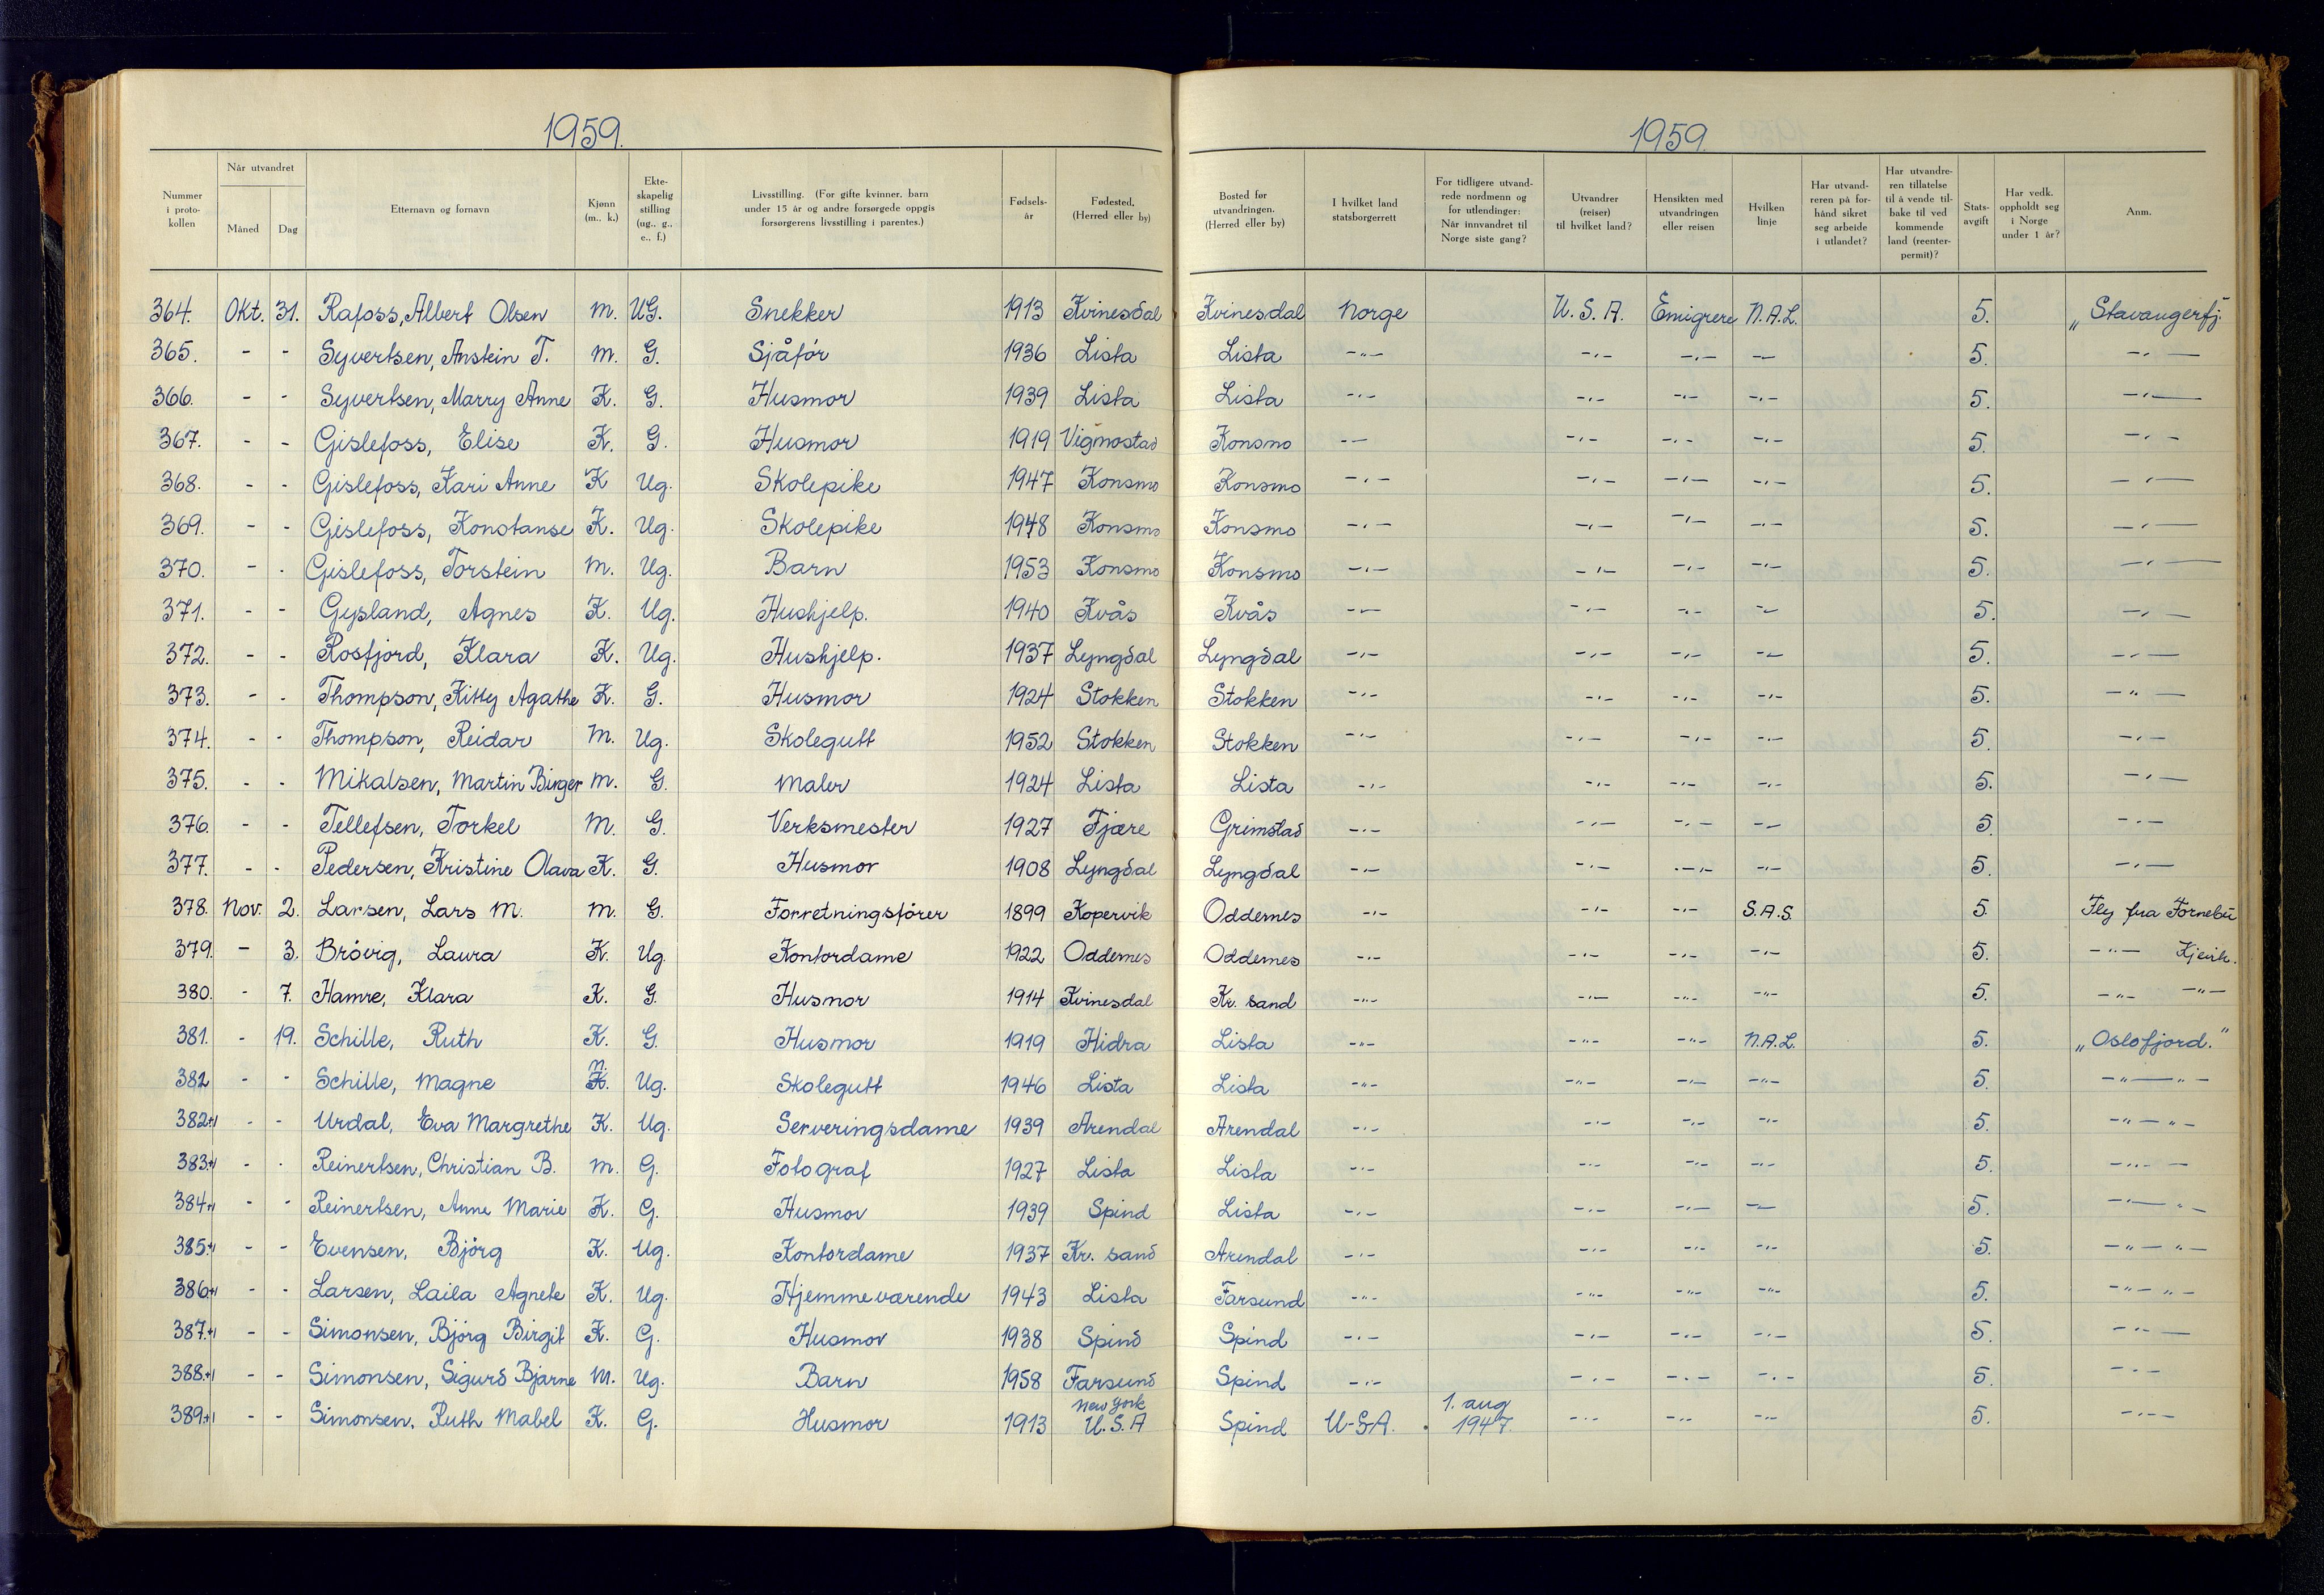 1959.
1959.
Nummer i protokollen | Når utvandret Måned | Dag | Etternavn og fornavn | Kjønn (m., k.) | Ekteskapelig stilling (ug., g., e., f.) | Livsstilling. (For gifte kvinner, barn under 15 år og andre forsørgede oppgis forsørgerens livsstilling i parentes.) | Fødselsår | Fødested. (Herred eller by) | Bosted før utvandringen. (Herred eller by) | I hvilket land statsborgerrett | For tidligere utvandrede nordmenn og for utlendinger: Når innvandret til Norge siste gang? | Utvandrer (reiser) til hvilket land? | Hensikten med utvandringen eller reisen | Hvilken linje | Har utvandreren på forhånd sikret seg arbeide i utlandet? | Har utvandreren tillatelse til å vende tilbake til ved kommende land (reenterpermit)? | Statsavgift | Har vedk. oppholdt seg i Norge under 1 år? | Anm.
364. Okt. 31. Rafoss, Albert Olsen M. UG. Snekker 1913 Kvinesdal Kvinesdal Norge U.S.A. Emigrere N.A.L. 5. „Stavangerfj.
365. - - Syvertsen, Anstein T. M. G. Sjåfór 1936 Lista Lista -"- -"- -"- -"- 5. -"-
366. - - Syvertsen, Marry Anne K. G. Husmor 1939 Lista Lista -"- -"- -"- -"- 5. -"-
367. - - Gislefoss, Elise K. G. Husmor 1919 Vigmostad Konsmo -"- -"- -"- -"- 5. -"-
368. - - Gislefoss, Kari Anne K Ug. Skolepike 1947 Konsmo Konsmo -"- -"- -"- -"- 5. -"-
369. - - Gislefoss, Konstanse K. Ug. Skolepike 1948 Konsmo Konsmo -"- -"- -"- -"- 5. -"-
370. - - Gislefoss, Torstein M. Ug. Barn 1953 Konsmo Konsmo -"- -"- -"- -"- 5. -"-
371. - - Gysland, Agnes K. Ug. Hushjelp. 1940 Kvås Kvås -"- -"- -"- -"- 5. -"-
372. - - Rosfjord, Klara K. Ug. Hushjelp. 1937 Lyngdal Lyngdal -"- -"- -"- -"- 5. -"-
373. - - Thompson, Kitty Agathe K. G. Husmor 1924 Stokken Stokken -"- -"- -"- -"- 5. -"-
374. - - Thompson, Reidar M. Ug. Skolegutt 1952 Stokken Stokken -"- -"- -"- -"- 5. -"-
375. - - Mikalsen, Martin Birger M. G. Maler 1924 Lista Lista -"- -"- -"- -"- 5. -"-
376. - - Tellefsen, Torkel M. G. Verksmester 1927 Fjære Grimstad -"- -"- -"- -"- 5. -"-
377. - - Pedersen, Kristine Olava K. G. Husmor 1908 Lyngdal Lyngdal -"- -"- -"- -"- 5. -"-
378. Nov. 2. Larsen, Lars M. M. G. Forretningsfórer 1899 Kopervik Oddernes -"- -"- -"- S.A.S. 5. Fly fra Fornebu
379. - 3. Bróvig, Laura K. Ug. Kontordame 1922 Oddernes Oddernes -"- -"- -"- -"- 5. -"- Kjevik.
380. - 7. Hamre, Klara K. G. Husmor 1914 Kvinesdal Kr. sand -"- -"- -"- -"- 5. -"- -"-
381. - 19. Schille, Ruth K. G. Husmor 1919 Hidra Lista -"- -"- -"- N.A.L. 5. „Oslofjord."
382 - - Schille, Magne M. K. Ug. Skolegutt 1946 Lista Lista -"- -"- -"- -"- 5. -"- "-
382+1 - - Urdal, Eva Margrethe K. Ug. Serveringsdame 1939 Arendal Arendal -"- -"- -"- -"- 5. -"- "-
383+1 - - Reinertsen, Christian B. M. G. Fotograf 1927 Lista Lista -"- -"- -"- -"- 5. -"- -
384+1 - - Reinertsen, Anne Marie K. G. Husmor 1939 Spind Lista -"- -"- -"- -"- 5. -"- "-
385+1 - - Evensen, Bjórg K. Ug. Kontordame 1937 Kr. sand Arendal -"- -"- -"- -"- 5. -"- "-
386+1 - - Larsen, Laila Agnete K. Ug. Hjemmeværende 1943 Lista Farsund -"- -"- -"- -"- 5. -"- "-
387+1 - - Simonsen, Bjórg Birgit K. G. Husmor 1938 Spind Spind -"- -"- -"- -"- 5. -"-
388+1 - - Simonsen, Sigurd Bjarne M. Ug. Barn 1958 Farsund Spind -"- -"- -"- -"- 5. -"-
389+1 - - Simonsen, Ruth Mabel K. G. Husmor 1913 New York U.S.A Spind U-S.A. 1. aug 1947. -"- -"- -"- 5. -"-